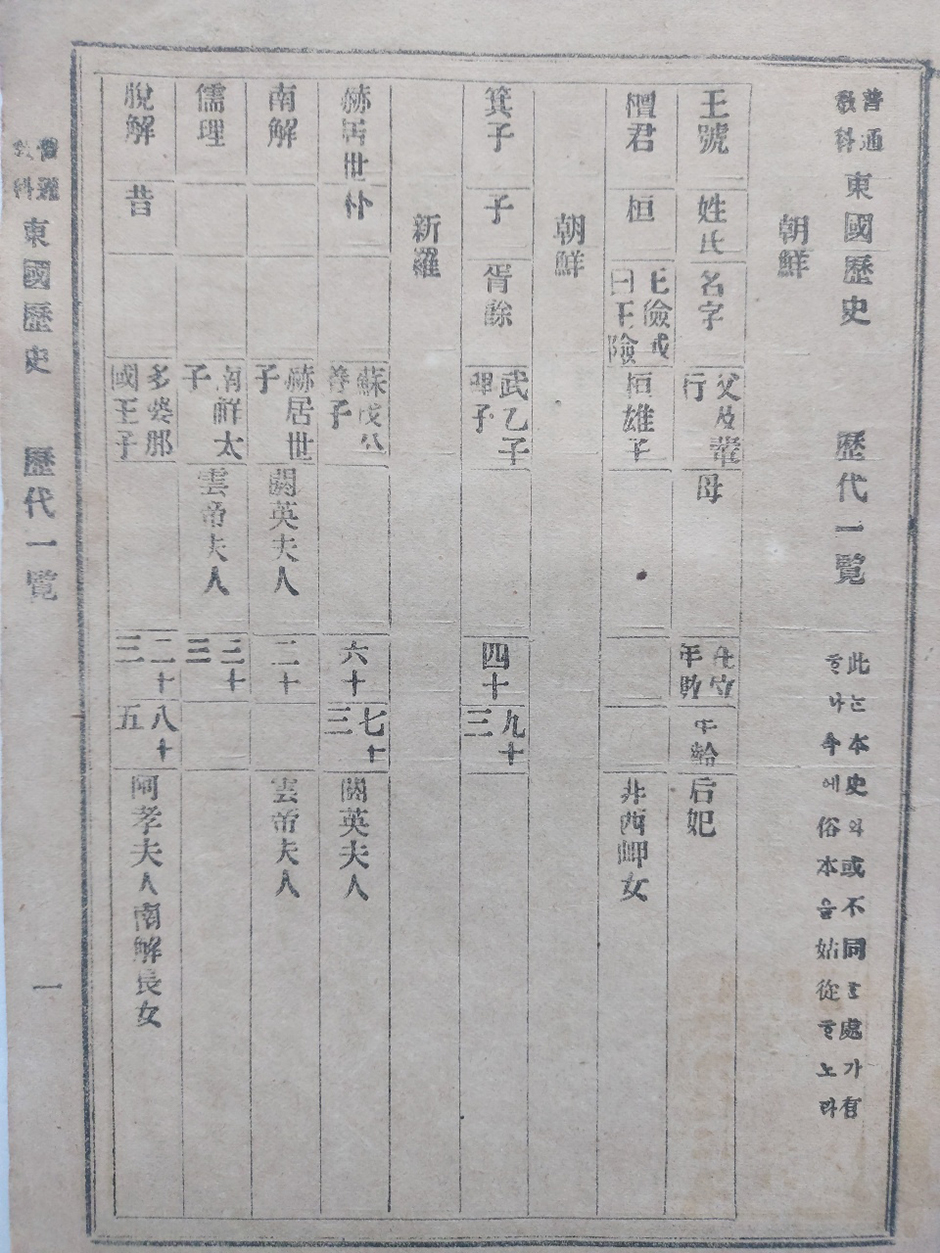 普通教科 東國歷史 歷代一覽 此는本史와或不同ᄒᆞᆫ處가有ᄒᆞ나今에俗本을姑從ᄒᆞ노라
朝鮮
王號 姓氏 名字 父及輩行 母 在位年數 年齡 后妃
檀君 桓 王儉或曰王險 桓雄子 非西岬女
朝鮮
箕子 子 胥餘 武乙子 四十 九十三
新羅
赫居世 朴 蘇伐公養子 六十 七十三 閼英夫人
南解 赫居世子 閼英夫人 二十 雲帝夫人
儒理 南解太子 雲帝夫人 三十三
脫解 昔 多婆那國王子 二十三 八十五 阿孝夫人南解長女
普通教科 東國歷史 歷代一覽 一